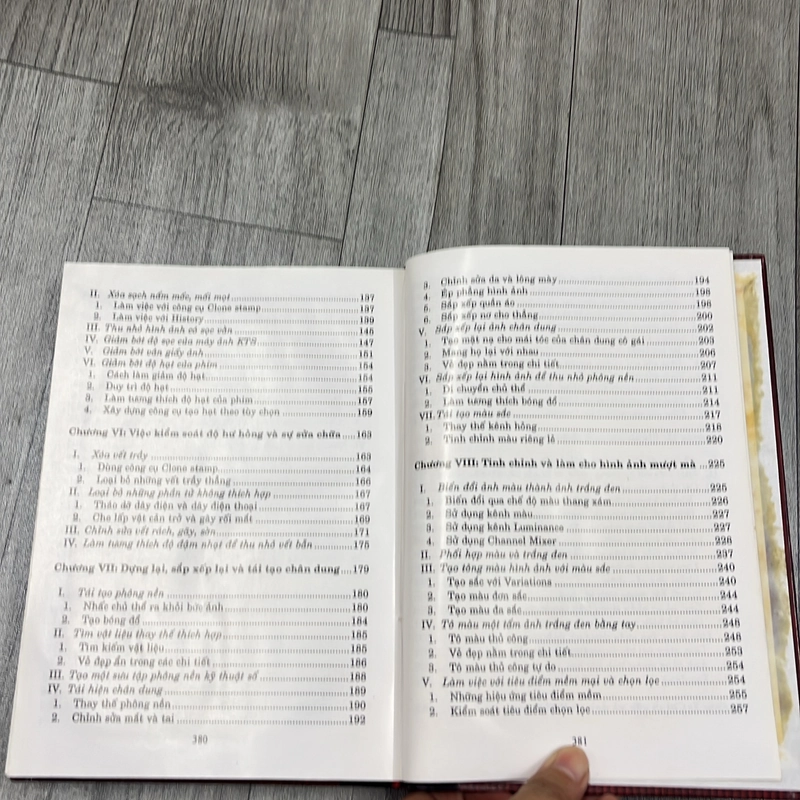 II. Xóa sạch nấm mốc, mối mọt ... 137
1. Làm việc với công cụ Clone stamp ... 137
2. Làm việc với History ... 139
III. Thu nhỏ hình ảnh có sọc vằn ... 145
IV. Giảm bớt độ sọc của máy ảnh KTS ... 147
V. Giảm bớt vân giấy ảnh ... 151
VI. Giảm bớt độ hạt của phim ... 154
1. Cách làm giảm độ hạt ... 154
2. Duy trì độ hạt ... 155
3. Làm tương thích độ hạt của phim ... 157
4. Xây dựng công cụ tạo hạt theo tùy chọn ... 159
Chương VI: Việc kiểm soát độ hư hỏng và sự sửa chữa ... 163
I. Xóa vết trầy ... 163
1. Dùng công cụ Clone stamp ... 164
2. Loại bỏ những vết trầy thẳng ... 166
II. Loại bỏ những phần tử không thích hợp ... 167
1. Tháo dỡ dây điện và dây điện thoại ... 167
2. Che lấp vật cản trở và gây rối mắt ... 169
III. Chỉnh sửa vết rách, gãy, sờn ... 171
IV. Làm tương thích độ đậm nhạt để thu nhỏ vết bẩn ... 175
Chương VII: Dựng lại, sắp xếp lại và tái tạo chân dung ... 179
I. Tái tạo phông nền ... 180
1. Nhấc chủ thể ra khỏi bức ảnh ... 180
2. Tạo bóng đổ ... 184
II. Tìm vật liệu thay thế thích hợp ... 185
1. Tìm kiếm vật liệu ... 185
2. Vẻ đẹp ẩn trong các chi tiết ... 186
III. Tạo một sưu tập phông nền kỹ thuật số ... 188
IV. Tái hiện chân dung ... 189
1. Thay thế phông nền ... 190
2. Chỉnh sửa mắt và tai ... 192
380
3. Chỉnh sửa da và lông mày ... 194
4. Ép phẳng hình ảnh ... 198
5. Sắp xếp quần áo ... 198
6. Sắp xếp nơ cho thẳng ... 200
V. Sắp xếp lại ảnh chân dung ... 202
1. Tạo mặt nạ cho mái tóc của chân dung cô gái ... 203
2. Mang họ lại với nhau ... 206
3. Vẻ đẹp nằm trong chi tiết ... 207
VI. Sắp xếp lại hình ảnh để thu nhỏ phông nền ... 211
1. Di chuyển chủ thể ... 211
2. Làm tương thích bóng đổ ... 214
VII. Tái tạo màu sắc ... 217
1. Thay thế kênh hỏng ... 218
2. Tinh chỉnh màu riêng lẻ ... 220
Chương VIII: Tinh chỉnh và làm cho hình ảnh mượt mà ... 225
I. Biến đổi ảnh màu thành ảnh trắng đen ... 225
1. Biến đổi qua chế độ màu thang xám ... 226
2. Sử dụng kênh màu ... 227
3. Sử dụng kênh Luminance ... 227
4. Sử dụng Channel Mixer ... 228
II. Phối hợp màu và trắng đen ... 237
III. Tạo tông màu hình ảnh với màu sắc ... 240
1. Tạo sắc với Variations ... 240
2. Tạo màu đơn sắc ... 244
3. Tạo màu đa sắc ... 244
IV. Tô màu một tấm ảnh trắng đen bằng tay ... 248
1. Tô màu thủ công ... 248
2. Vẻ đẹp nằm trong chi tiết ... 253
3. Tô màu thủ công tự do ... 254
V. Làm việc với tiêu điểm mềm mại và chọn lọc ... 254
1. Những hiệu ứng tiêu điểm mềm ... 255
2. Kiểm soát tiêu điểm chọn lọc ... 257
381